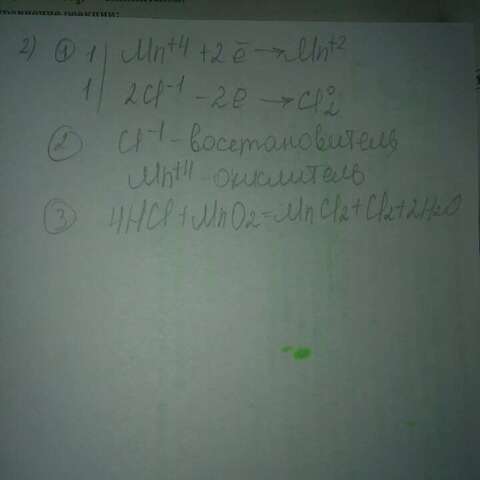 уравнение реакции:
2) ① 1 | Mn⁺⁴ + 2ē → Mn⁺²
1 | 2Cl⁻¹ - 2e → Cl₂⁰
② Cl⁻¹ - восстановитель
Mn⁺⁴ - окислитель
③ 4HCl + MnO₂ = MnCl₂ + Cl₂ + 2H₂O